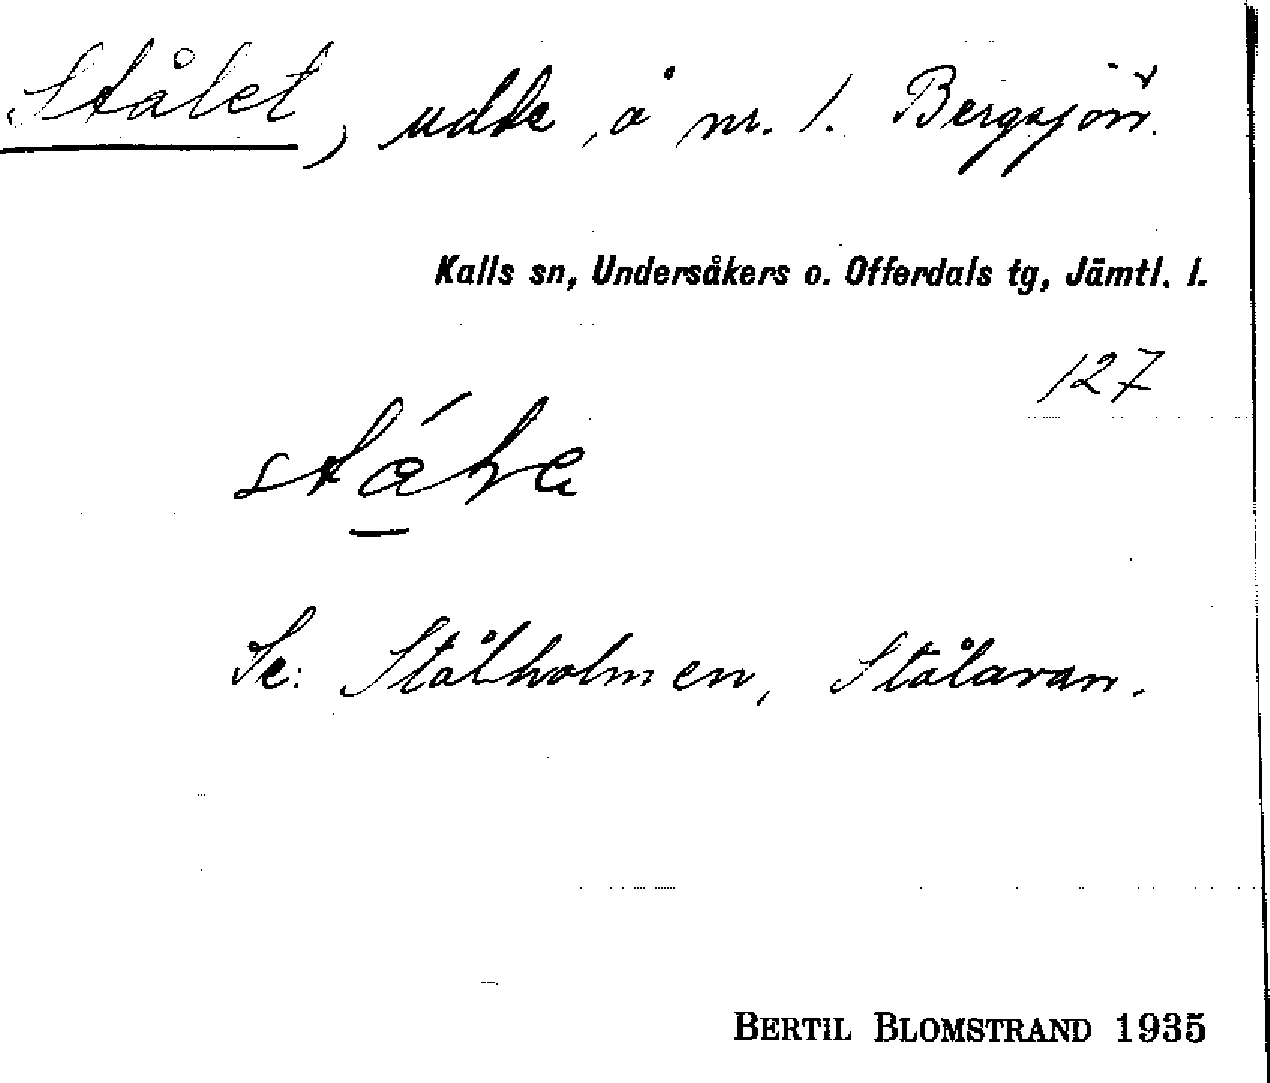 Stålet, udde å nr. 1. Bergsjön.
Kalls sn, Undersåkers o. Offerdals tg, Jämtl. l.
127
Se: Stålholmen, Stålaran.
BERTIL BLOMSTRAND 1935